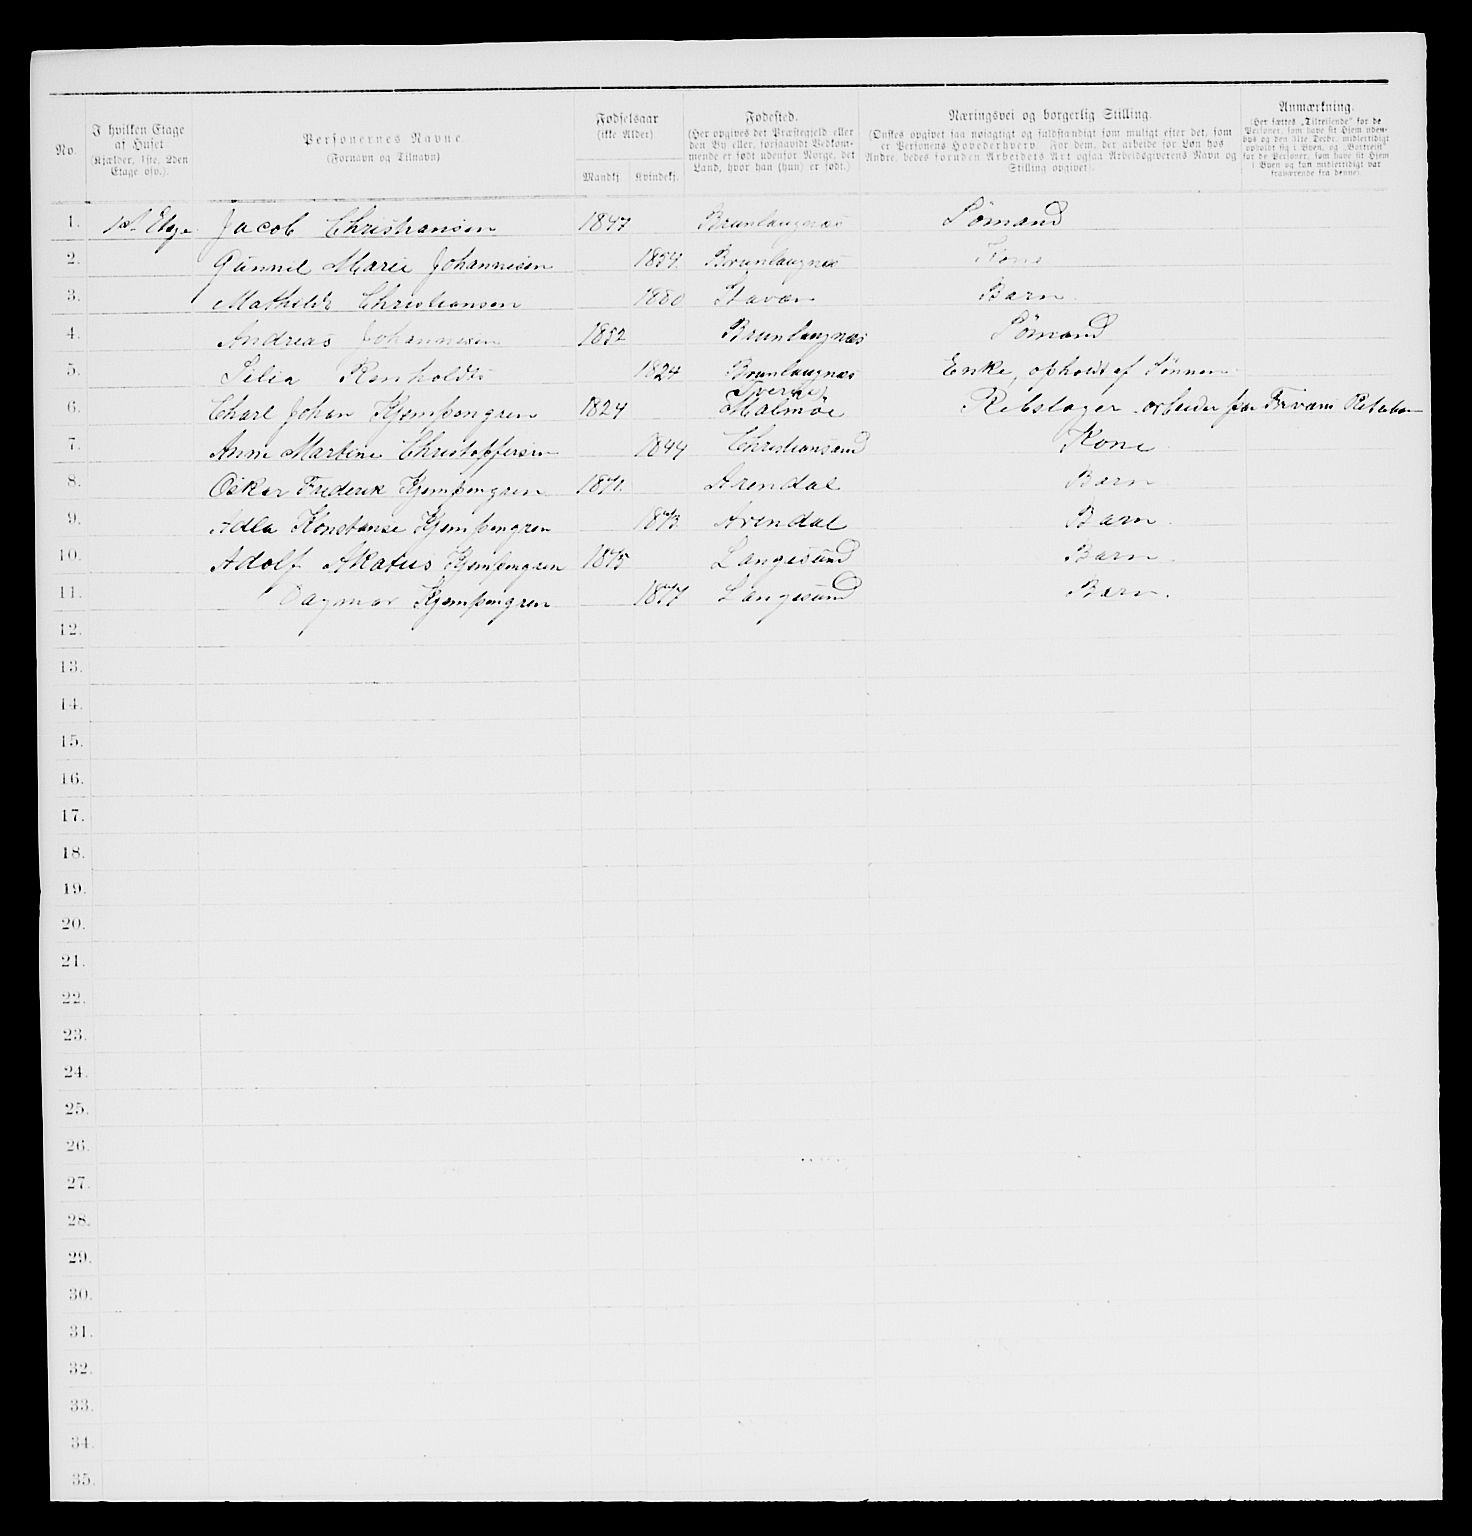 No.
I hvilken Etage af Huset (Kjælder, 1ste, 2den Etage osv.).
Personernes Navne (Fornavn og Tilnavn)
Fødselsaar (ikke Alder).
Mandkj. Kvindekj.
Fødested. (Her opgives det Præstegjeld eller den By eller, forsaavidt Vedkommende er født udenfor Norge, det Land, hvor han (hun) er født.)
Næringsvei og borgerlig Stilling. (Ønskes opgivet saa nøiagtigt og fuldstændigt som muligt efter det, som er Personens Hovederhverv. For dem, der arbeide for Løn hos Andre, bedes foruden Arbeidets Art ogsaa Arbeidsgiverens Navn og Stilling opgivet).
Anmærkning. (Her sættes „Tilreisende“ for de Personer, som have sit Hjem udenbys og den 31te Decbr. midlertidigt opholdt sig i Byen, og „Bortreist“ for de Personer, som have sit Hjem i Byen og kun midlertidigt var fraværende fra denne).
1. 1st Etage Jacob Christiansen 1847 Brunlaugnæs Sömand
2. Gunnil Marie Johannesen 1854 Brunlaugnæs Kone
3. Mathilde Christiansen 1880 Stavæn Barn
4. Andreas Johannesen 1852 Brunlaugnæs Sömand
5. Silia Renholdts 1824 Brunlaugnæs Enke, opholdt af Sönnen
6. Charl Johan Kjempengren 1824 Sverige Malmöe Rebslager arbeider paa
7. Anne Martine Christoffersen 1844 Christiansand Kone
8. Oskar Frederik Kjempengren 1871 Arendal Barn
9. Adla Konstanse Kjempengren 1873 Arendal Barn.
10. Adolf Akatus Kjempengren 1875 Langesund Barn
11. Dagmar Kjempengren 1877 Langesund Barn.
12.
13.
14.
15.
16.
17.
18.
19.
20.
21.
22.
23.
24.
25.
26.
27.
28.
29.
30.
31.
32.
33.
34.
35.